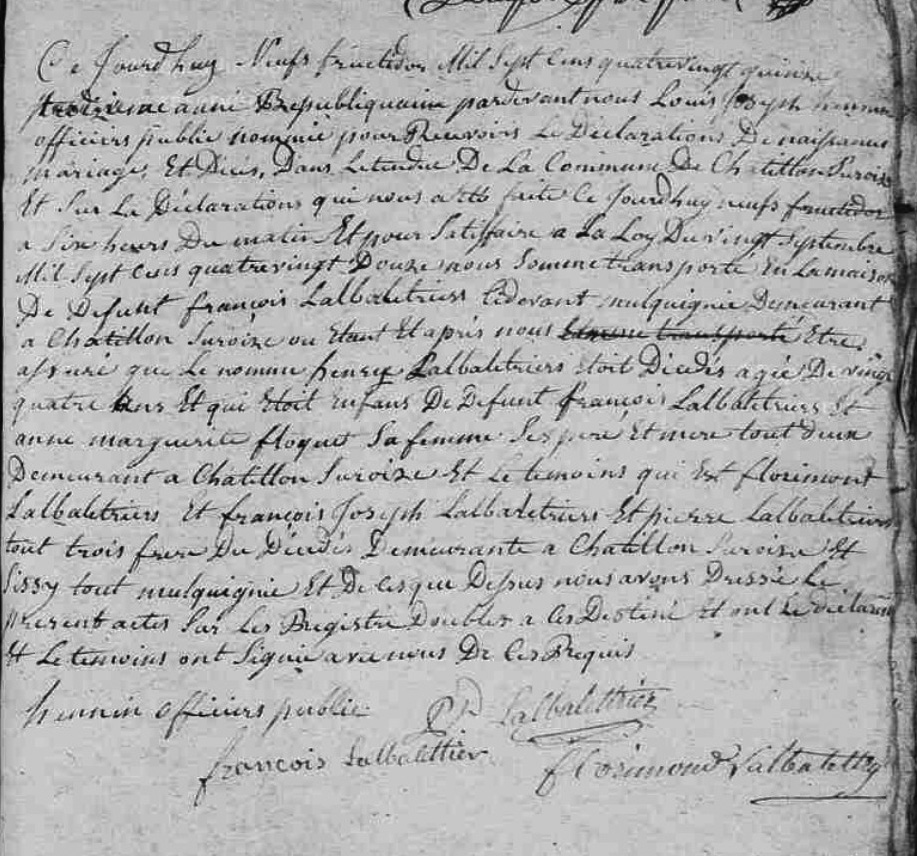 Ce Jourd huy Neufs fructidor Mil Sept Cens quatrevingt quinze
troizieme anné Republiquaine pardevant nous Louis Joseph hennin
officiers public nommié pour Recevoirs Le Déclarations De naissances
mariages Et Décés, Dans Letendue De La Commune De Chatillon Suroize
Et Sur La Déclarations qui nous a été faite Ce Jourdhuy neufs fructidor
a Six heurs Du matin Et pour Satiffaire a La Loy Du vingt Septembre
Mil Sept Cens quatrevingt Douze nous Somme transporté En Lamaison
De Defunt françois Lalbaletriers Cidevant mulquignié Demeurant
a Chatillon Suroize ou Etant Et aprés nous Etre
assuré que Le nomme henry Lalbaletriers Etoit Décédés agée De vingt
quatre Ans Et qui Etoit Enfans De Defunt françois Lalbaletriers Et
anne marguerite floquet Sa femme Ses pere Et mere tout deux
Demeurant a Chatillon Suroize Et Le temoins qui Est florimont
Lalbaletriers Et françois Joseph Lalbaletriers Et pierre Lalbaletriers
tout trois frere Du Décedés Demeurante a Chatillon Suroize Et
Sissy tout mulquignié Et De Cesque Dessus nous avons Dressée Le
present actes Sur Les Registre Doubles a Ces Destiné Et ont Le déclarant
Et Le temoins ont Signié avec nous De Ces Requis
hennin officiers public Lalbalettrier
françois Lalbalettier
florimond Lalbalettry